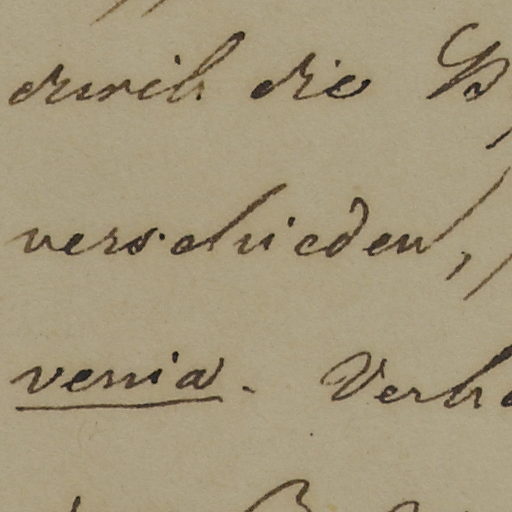 durch die
verschieden,
venia. Verh